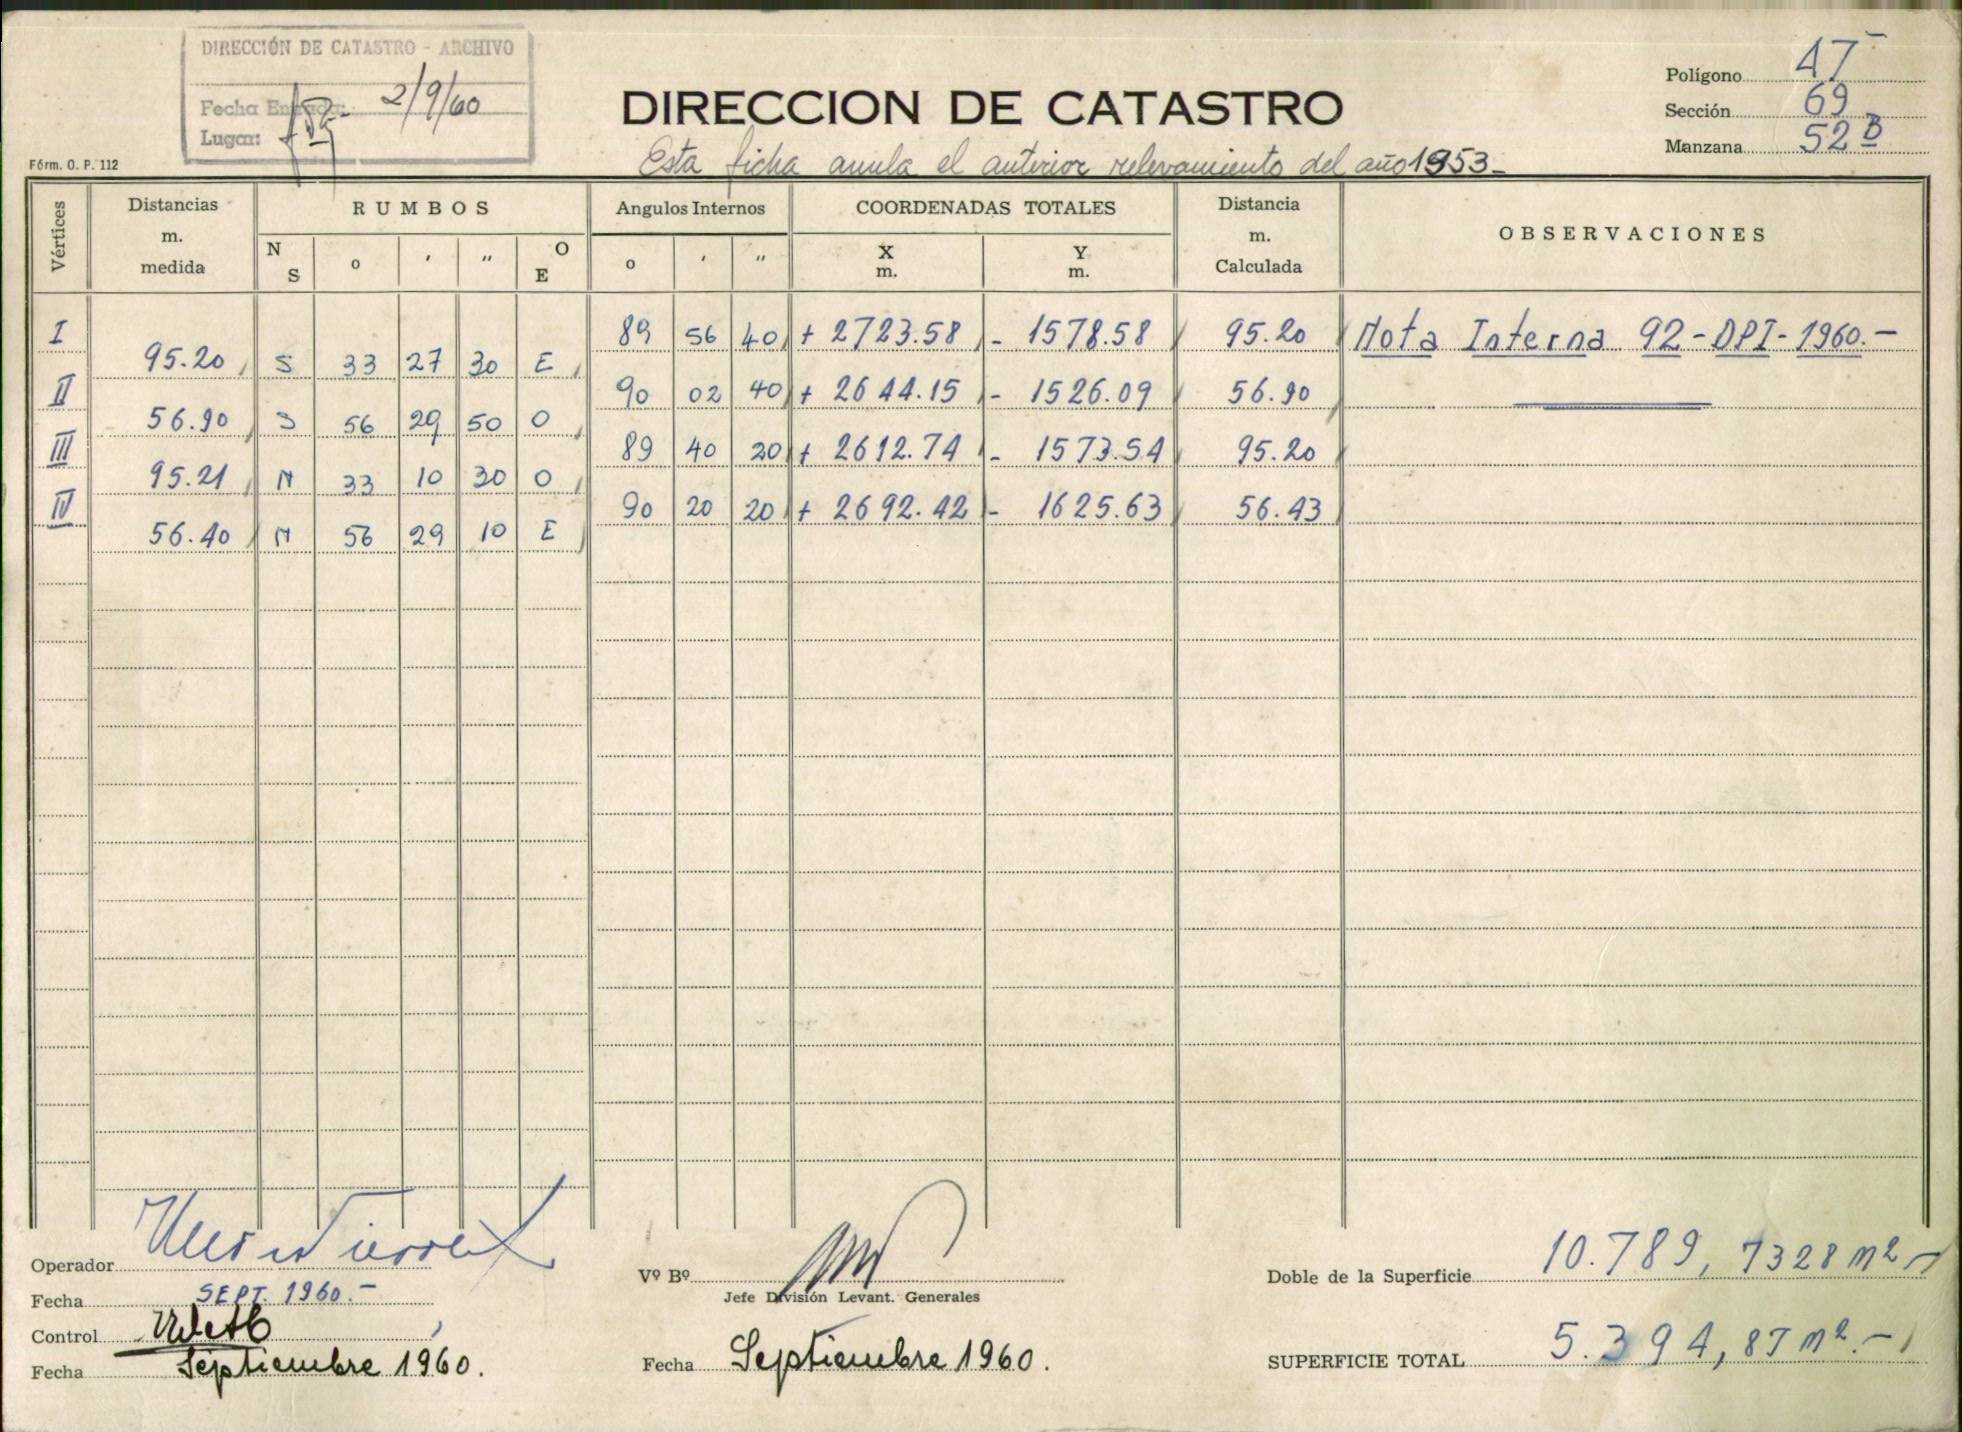 DIRECCIÓN DE CATASTRO - ARCHIVO
Fecha Entrada: 2/9/60
Lugar:
Fórm. O. P. 112
DIRECCION DE CATASTRO
Esta ficha anula el anterior relevamiento del año 1953-
Polígono 47
Sección 69
Manzana 52 B
Vértices
Distancias m. medida
RUMBOS
N S o ' " O E
Angulos Internos
o ' "
COORDENADAS TOTALES
X m. Y m.
Distancia m. Calculada
OBSERVACIONES
I 89 56 40 + 2723.58 - 1578.58 95.20 Nota Interna 92-DPI-1960.-
95.20 S 33 27 30 E
II 90 02 40 + 2644.15 - 1526.09 56.90
56.90 S 56 29 50 O
III 89 40 20 + 2612.74 - 1573.54 95.20
95.21 N 33 10 30 O
IV 90 20 20 + 2692.42 - 1625.63 56.43
56.40 N 56 29 10 E
Operador
Fecha SEPT. 1960.-
Control
Fecha Septiembre 1960.
Vº Bº
Jefe División Levant. Generales
Fecha Septiembre 1960.
Doble de la Superficie 10.789,7328 m2-
SUPERFICIE TOTAL 5.394,87 m2.-